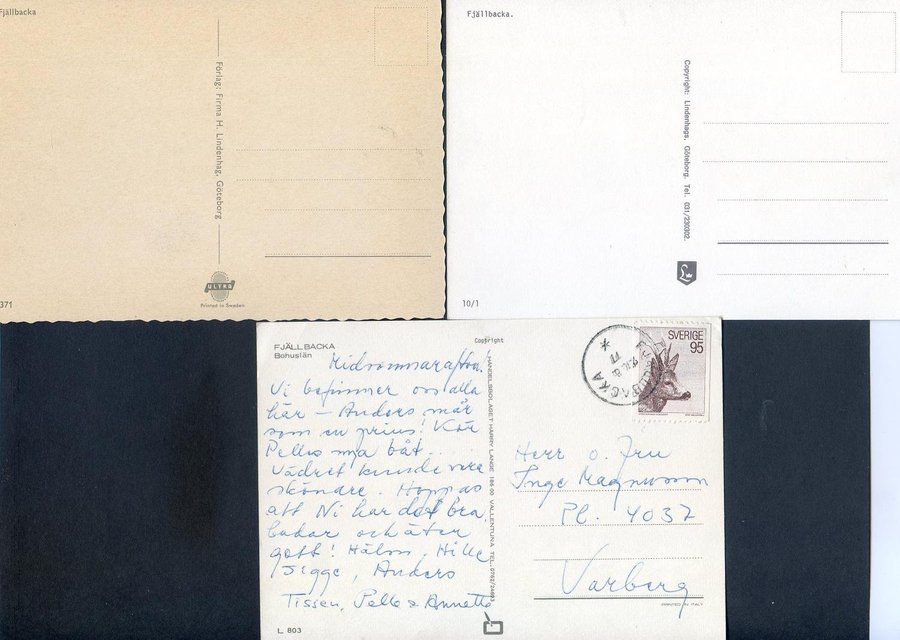 Fjällbacka
Förlag: Firma H. Lindenhag, Göteborg
ULTRA
Printed in Sweden
371
Fjällbacka.
Copyright: Lindenhags, Göteborg. Tel. 031/230302.
10/1
FJÄLLBACKA
Bohuslän
Copyright
HANDELSBOLAGET HARRY LANGE 186 00 VALLENTUNA TEL. 0762/24693
SVERIGE
95
Midsommarafton.
Vi befinner oss alla
här – Anders mår
som en prins! Kör
Pelles nya båt..
Vädret kunde vara
skönare. Hoppas
att Ni har det bra,
badar och äter
gott! Hälsn. Hille
Sigge, Anders
Tissen, Pelle & Annette
Herr o. Fru
Inge Magnusson
Pl. 4037
Varberg
PRINTED IN ITALY
L 803